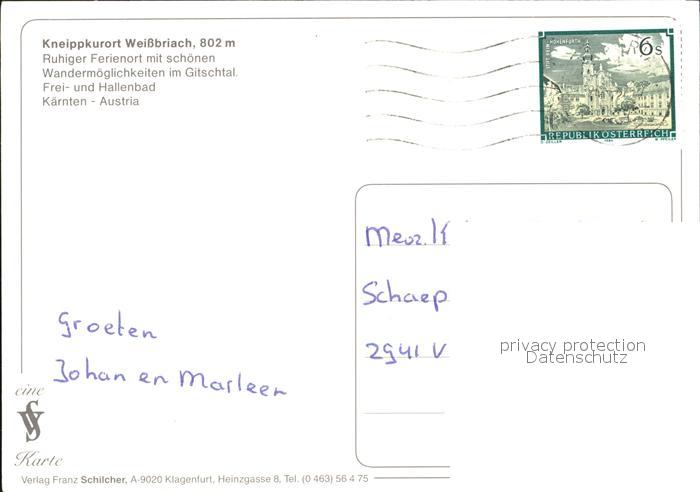 Kneippkurort Weißbriach, 802 m
Ruhiger Ferienort mit schönen
Wandermöglichkeiten im Gitschtal.
Frei- und Hallenbad
Kärnten - Austria
6s
REPUBLIK ÖSTERREICH
Mevr. K
Schaep
2941 V
privacy protection
Datenschutz
Groeten
Johan en Marleen
eine
Karte
Verlag Franz Schilcher, A-9020 Klagenfurt, Heinzgasse 8, Tel. (0 463) 56 4 75